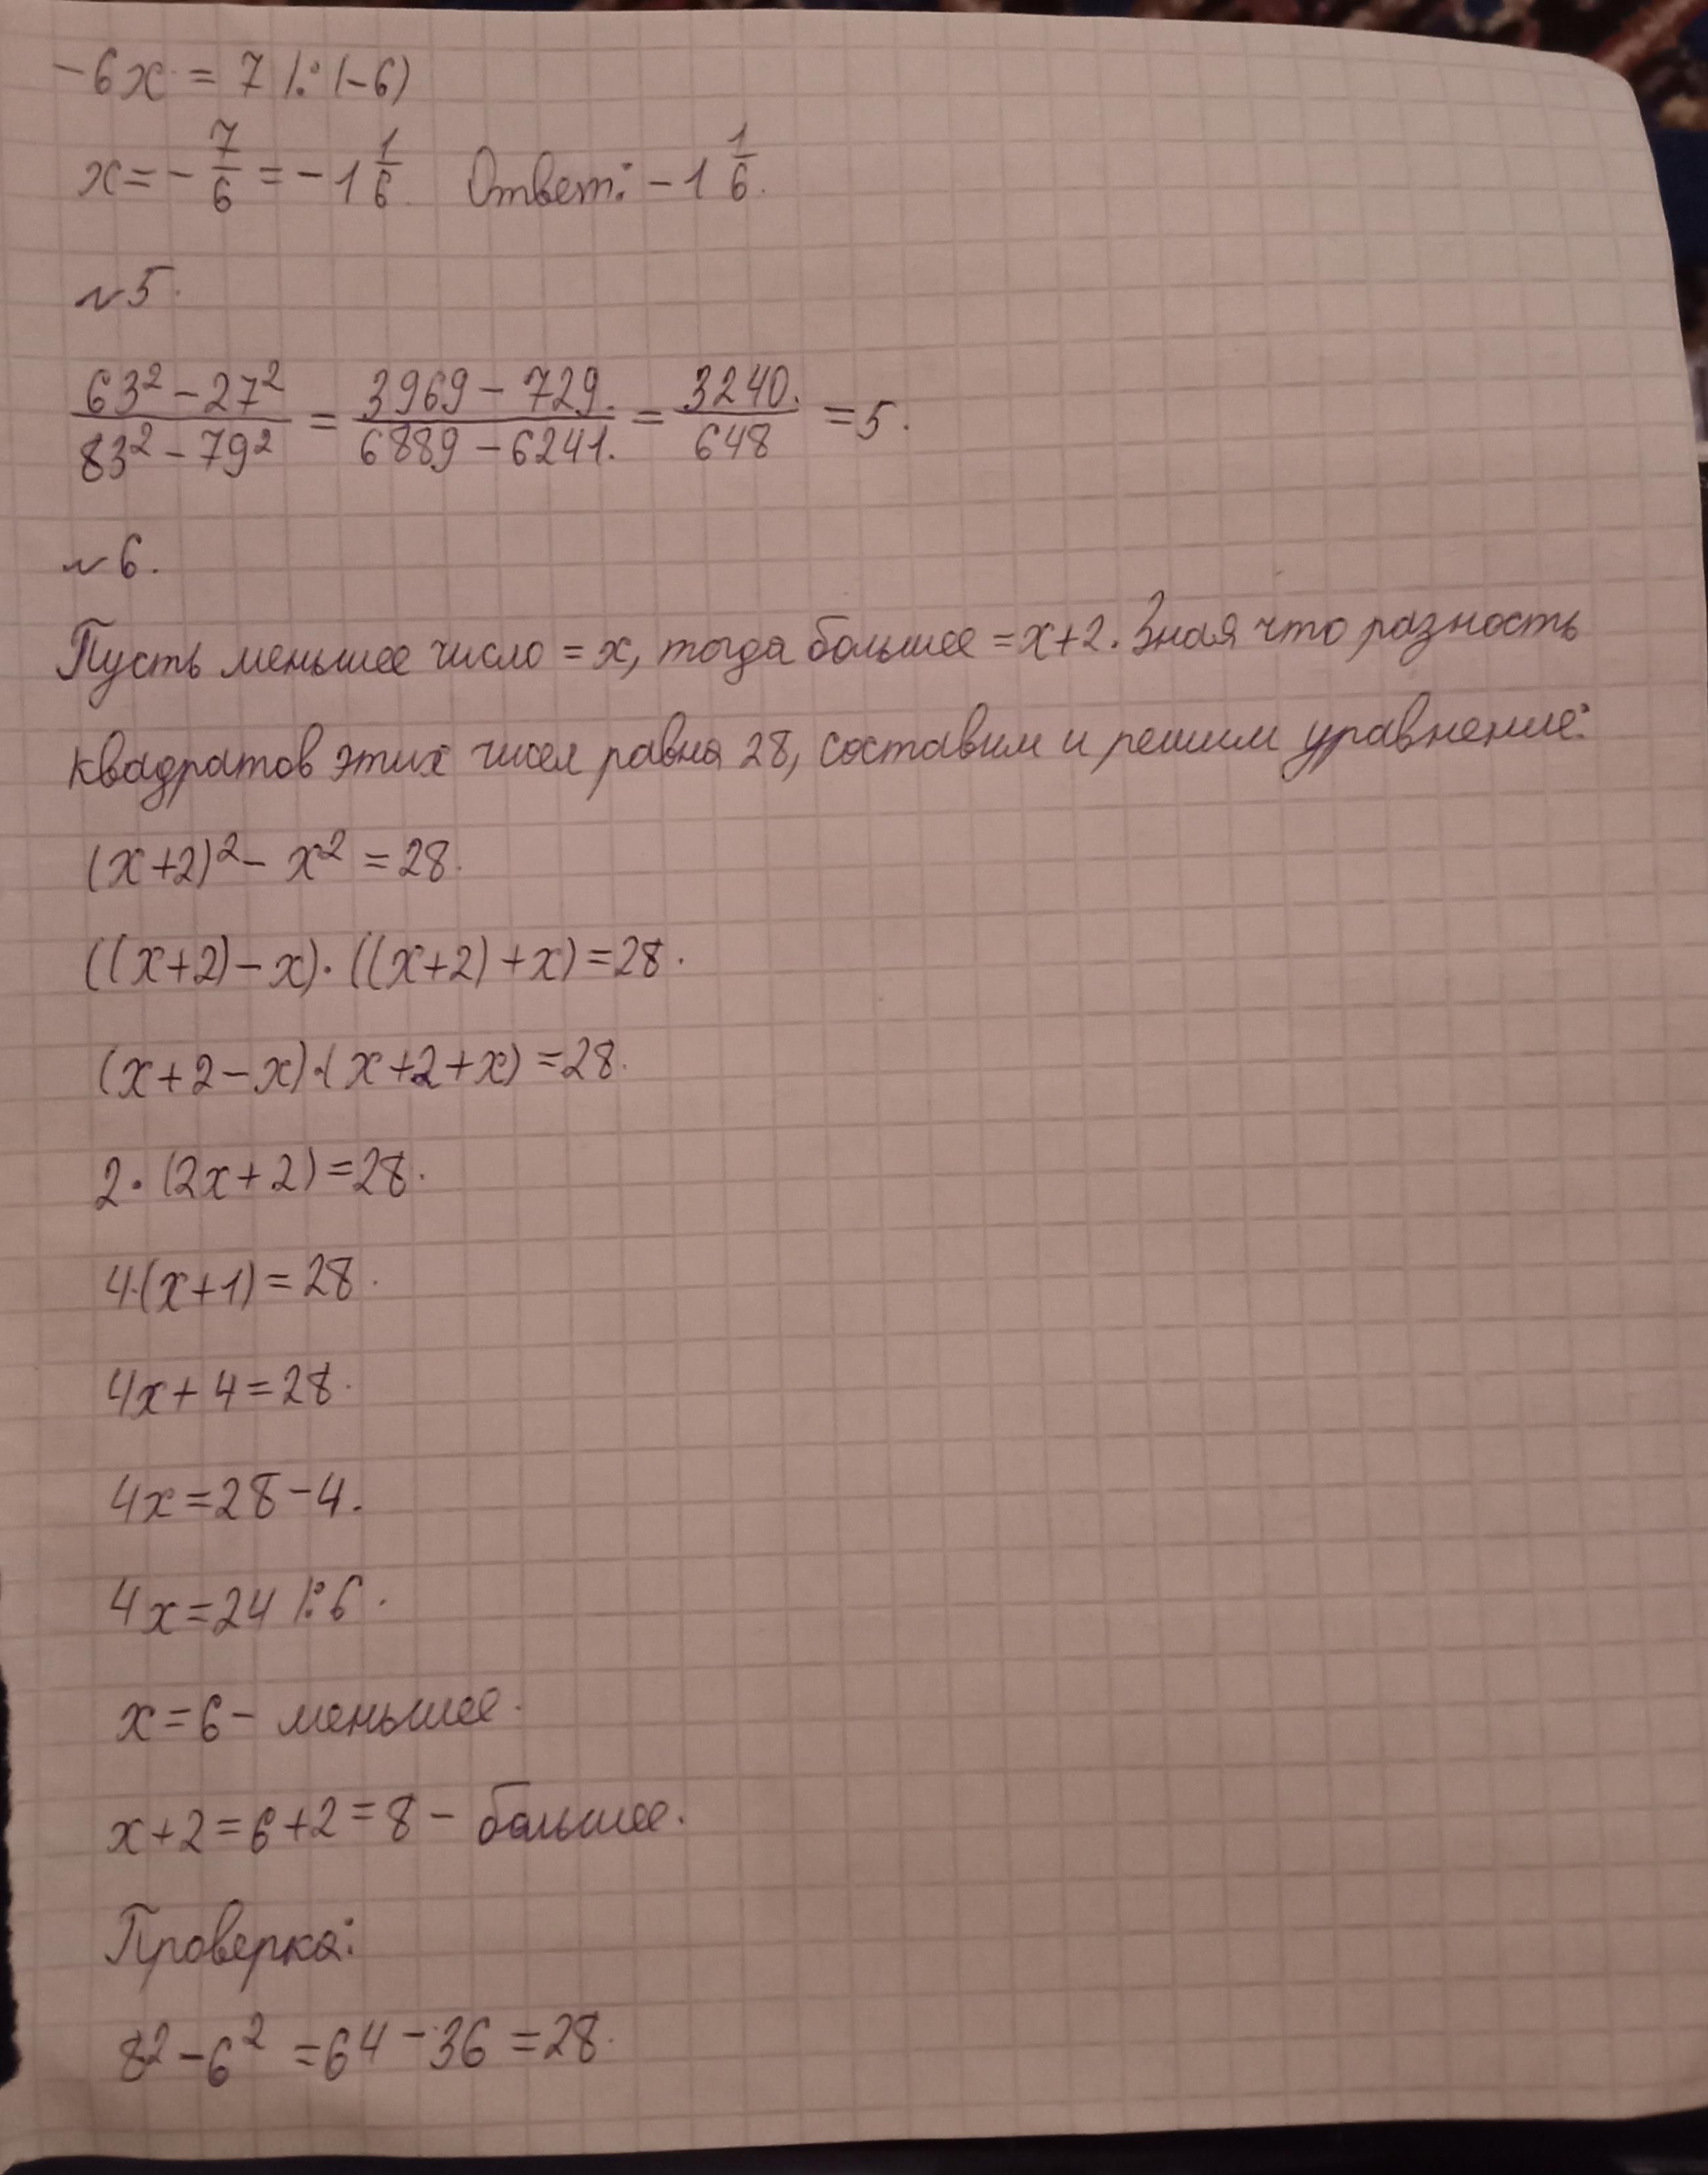 -6x = 7 |:(-6)
x = -7/6 = -1 1/6. Ответ: -1 1/6.
№5.
(63² - 27²)/(83² - 79²) = (3969 - 729.)/(6889 - 6241.) = 3240./648 = 5.
№6.
Пусть меньшее число = x, тогда большее = x+2. Зная что разность
квадратов этих чисел равна 28, составим и решим уравнение:
(x+2)² - x² = 28.
((x+2)-x)·((x+2)+x)=28.
(x+2-x)·(x+2+x)=28.
2·(2x+2)=28.
4·(x+1)=28.
4x+4=28.
4x=28-4.
4x=24 |:6.
x=6- меньшее.
x+2=6+2=8- большее.
Проверка:
8²-6² =64-36=28.